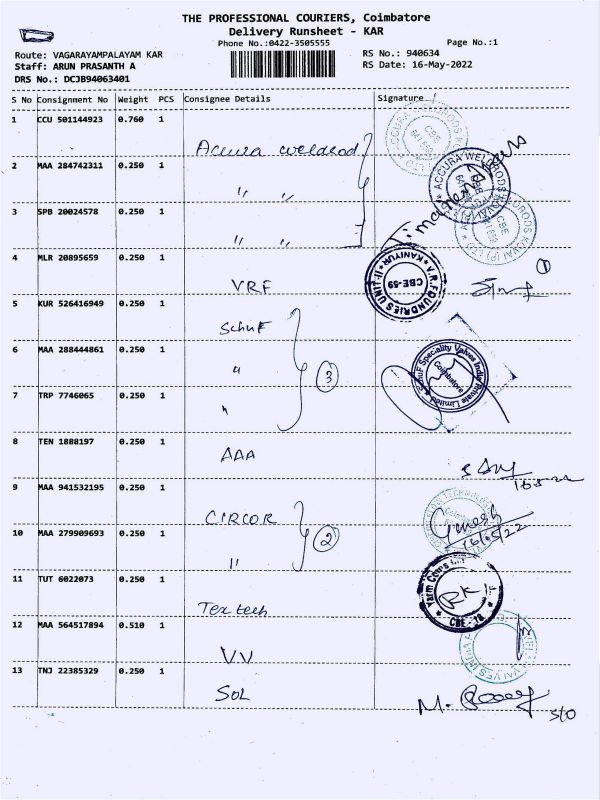 THE PROFESSIONAL COURIERS, Coimbatore
Delivery Runsheet - KAR
Phone No.:0422-3505555
Page No.:1
Route: VAGARAYAMPALAYAM KAR
RS No.: 940634
Staff: ARUN PRASANTH A
RS Date: 16-May-2022
DRS No.: DCJB94063401
S No Consignment No Weight PCS Consignee Details Signature
1 CCU 501144923 0.760 1
Accura weldrod
2 MAA 284742311 0.250 1
" "
3 SPB 20024578 0.250 1
" "
4 MLR 20895659 0.250 1
VRF
1
5 KUR 526416949 0.250 1
Schuf
6 MAA 288444861 0.250 1
"
3
7 TRP 7746065 0.250 1
"
8 TEN 1888197 0.250 1
AAA
16522
9 MAA 941532195 0.250 1
CIRCOR
Ganesh
16/05/22
10 MAA 279909693 0.250 1
"
2
11 TUT 6022073 0.250 1
Tex tech
RK
12 MAA 564517894 0.510 1
VV
13 TNJ 22385329 0.250 1
SOL
M.
S/O
ACCURA WELDRODS
CBE
641 659
A.R.FOUNDRIES UNIT-II
KANIYUR
CBE-59
SchuF Speciality Valves India Private Limited
Coimbatore
CBE - 18